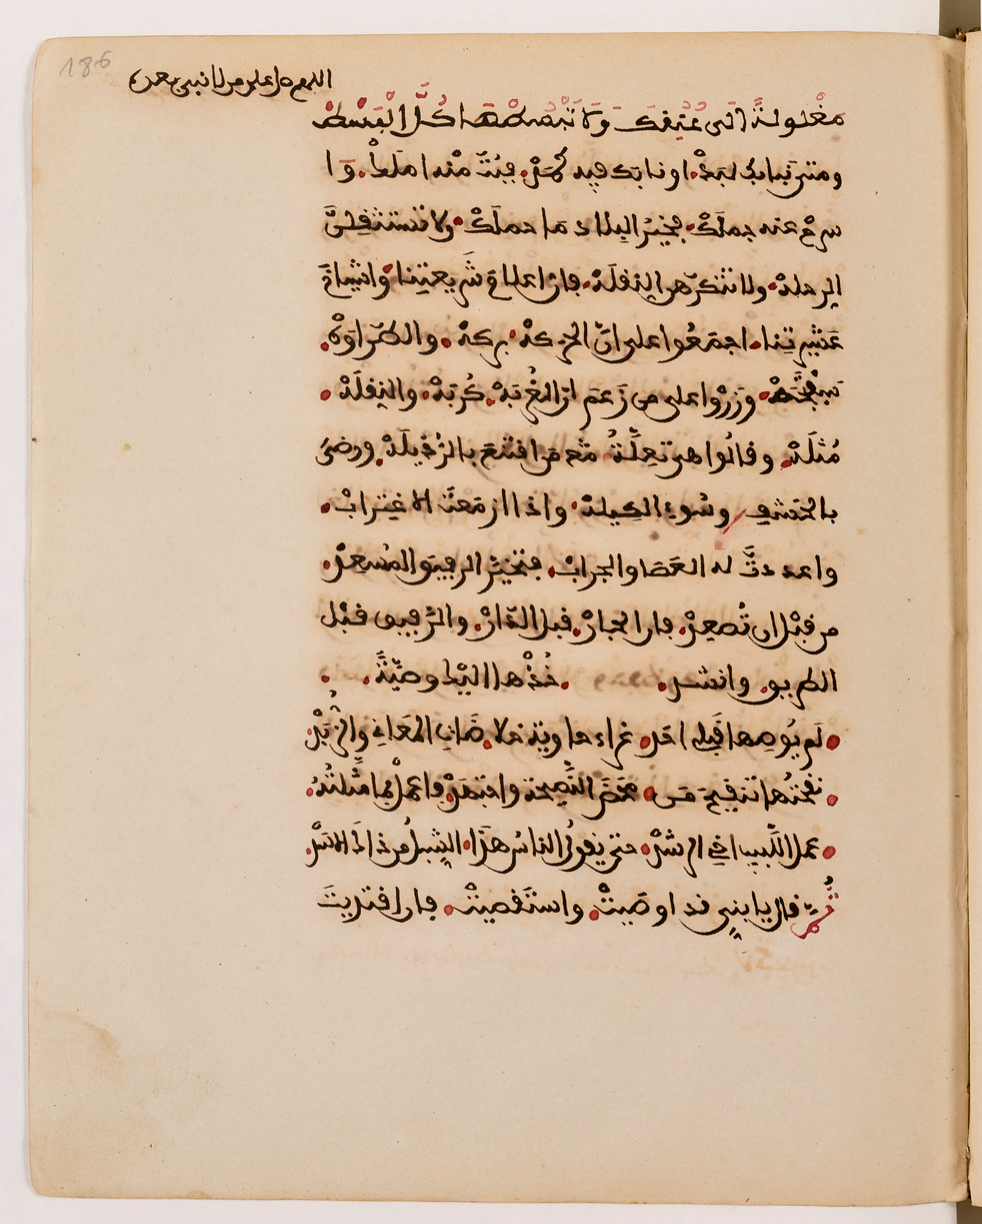 186
اللهم صل على من لا نبي بعده
مَغْلُولَةً اِلَى عُنُقِكَ وَلَا تَبْسُطْهَا كُلَّ الْبَسْطْ
ومتى نبا بك بلدْ، او نابك فيه كَمَدْ، فبُتَّ منه املكْ، وَا
سرحْ عنه جملكْ، فخيرُ البلاد مَا حملكْ، ولا تستثقِلنَّ
الرحلهْ، ولا تكرَهن النقلَهْ، فان اعلامَ شَريعتِنا، وَاشياخَ
عَشيرتِنا، اجمَعُوا على انّ الحركهْ بركهْ، والطّرَاوَهْ
سُفْتَجَهْ، وزَرَوْا على من زَعَم انّ الغُربَهْ كُربَهْ، والنقلَهْ
مُثلَهْ، وقالُوا هي تعِلّةُ من اقتنعَ بالرَّذيلهْ، ورضىَ
بالحَشفِ وسُوءِ الكيلهْ، واذا ازمَعتَ الاغترابْ،
واعددتَّ له العَصَا والجرابْ، فتخيَّر الرفيقَ المُسعِدْ،
من قبْل ان تُصعِدْ، فان الجارْ، قبل الدّارْ، والرَّفيق قبْل
الطريق، وانشد، خُذْها اليْك وصيّةً
لم يُوصِها قَبلى احَد، غراء حاوية خلاصَاتِ المَعانِي والزُّبَدْ
نقحتُها تنقيحَ مَن، محَضَ النَّصِيحة واجتهَدْ، فاعمَلْ بما مثلتُهُ
عملَ اللّبيب اخي الرشدْ، حتى يقولُ الناسُ هَذَا الشبلُ من ذاكَ الاسَدْ
ثُمَّ قال يا بنِي قد اوصَيتْ، واستَقصيتْ، فان اقتديتَ